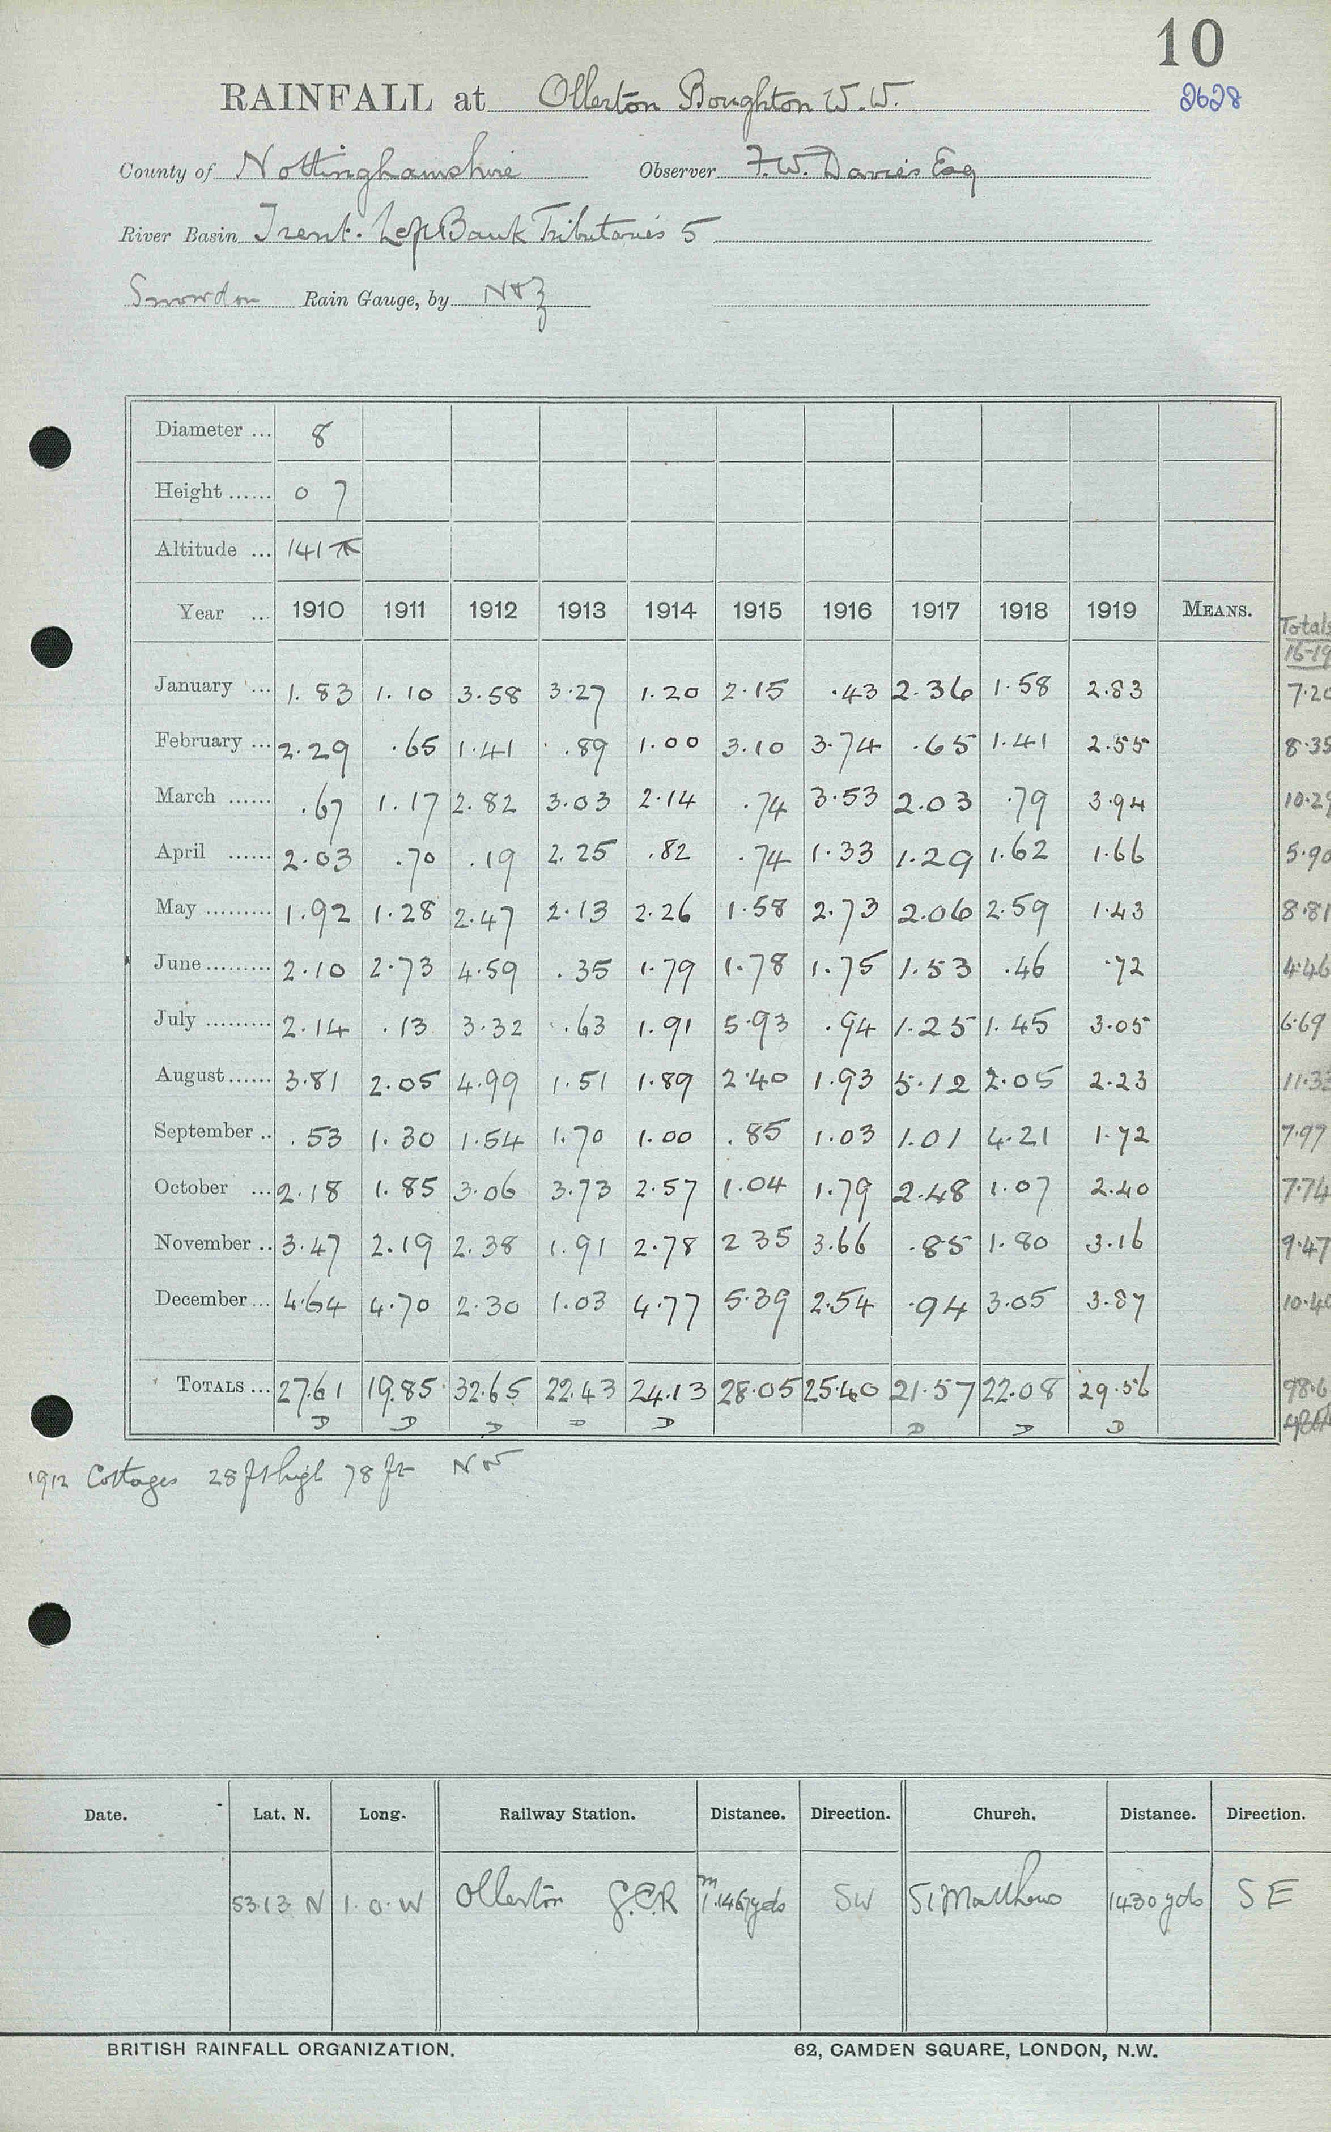 10
RAINFALL at Ollerton Boughton W.W. 2628
County of Nottinghamshire Observer F.W. Davies Esq
River Basin Trent. Left Bank Tributaries 5
Snowdon Rain Gauge, by N & Z
Diameter ... 8
Height ...... 0 7
Altitude ... 141
Year ... 1910 1911 1912 1913 1914 1915 1916 1917 1918 1919 MEANS. Totals
16-19
January ... 1.83 1.10 3.58 3.27 1.20 2.15 .43 2.36 1.58 2.83 7.20
February ... 2.29 .65 1.41 .89 1.00 3.10 3.74 .65 1.41 2.55 8.35
March ...... .67 1.17 2.82 3.03 2.14 .74 3.53 2.03 .79 3.94 10.29
April ...... 2.03 .70 .19 2.25 .82 .74 1.33 1.29 1.62 1.66 5.90
May ......... 1.92 1.28 2.47 2.13 2.26 1.58 2.73 2.06 2.59 1.43 8.81
June ......... 2.10 2.73 4.59 .35 1.79 1.78 1.75 1.53 .46 .72 4.46
July ......... 2.14 .13 3.32 .63 1.91 5.93 .94 1.25 1.45 3.05 6.69
August ...... 3.81 2.05 4.99 1.51 1.89 2.40 1.93 5.12 2.05 2.23 11.33
September .. .53 1.30 1.54 1.70 1.00 .85 1.03 1.01 4.21 1.72 7.97
October ... 2.18 1.85 3.06 3.73 2.57 1.04 1.79 2.48 1.07 2.40 7.74
November .. 3.47 2.19 2.38 1.91 2.78 2 35 3.66 .85 1.80 3.16 9.47
December ... 4.64 4.70 2.30 1.03 4.77 5.39 2.54 .94 3.05 3.87 10.40
TOTALS ... 27.61 19.85 32.65 22.43 24.13 28.05 25.40 21.57 22.08 29.56 98.6
D D D D D D D D
1912 Cottages 28 ft high 78 ft NW
Date. Lat. N. Long. Railway Station. Distance. Direction. Church. Distance. Direction.
53.13 N 1.0.W Ollerton G.C.R 1m.1467yds SW St Matthews 1430 yds SE
BRITISH RAINFALL ORGANIZATION. 62, CAMDEN SQUARE, LONDON, N.W.